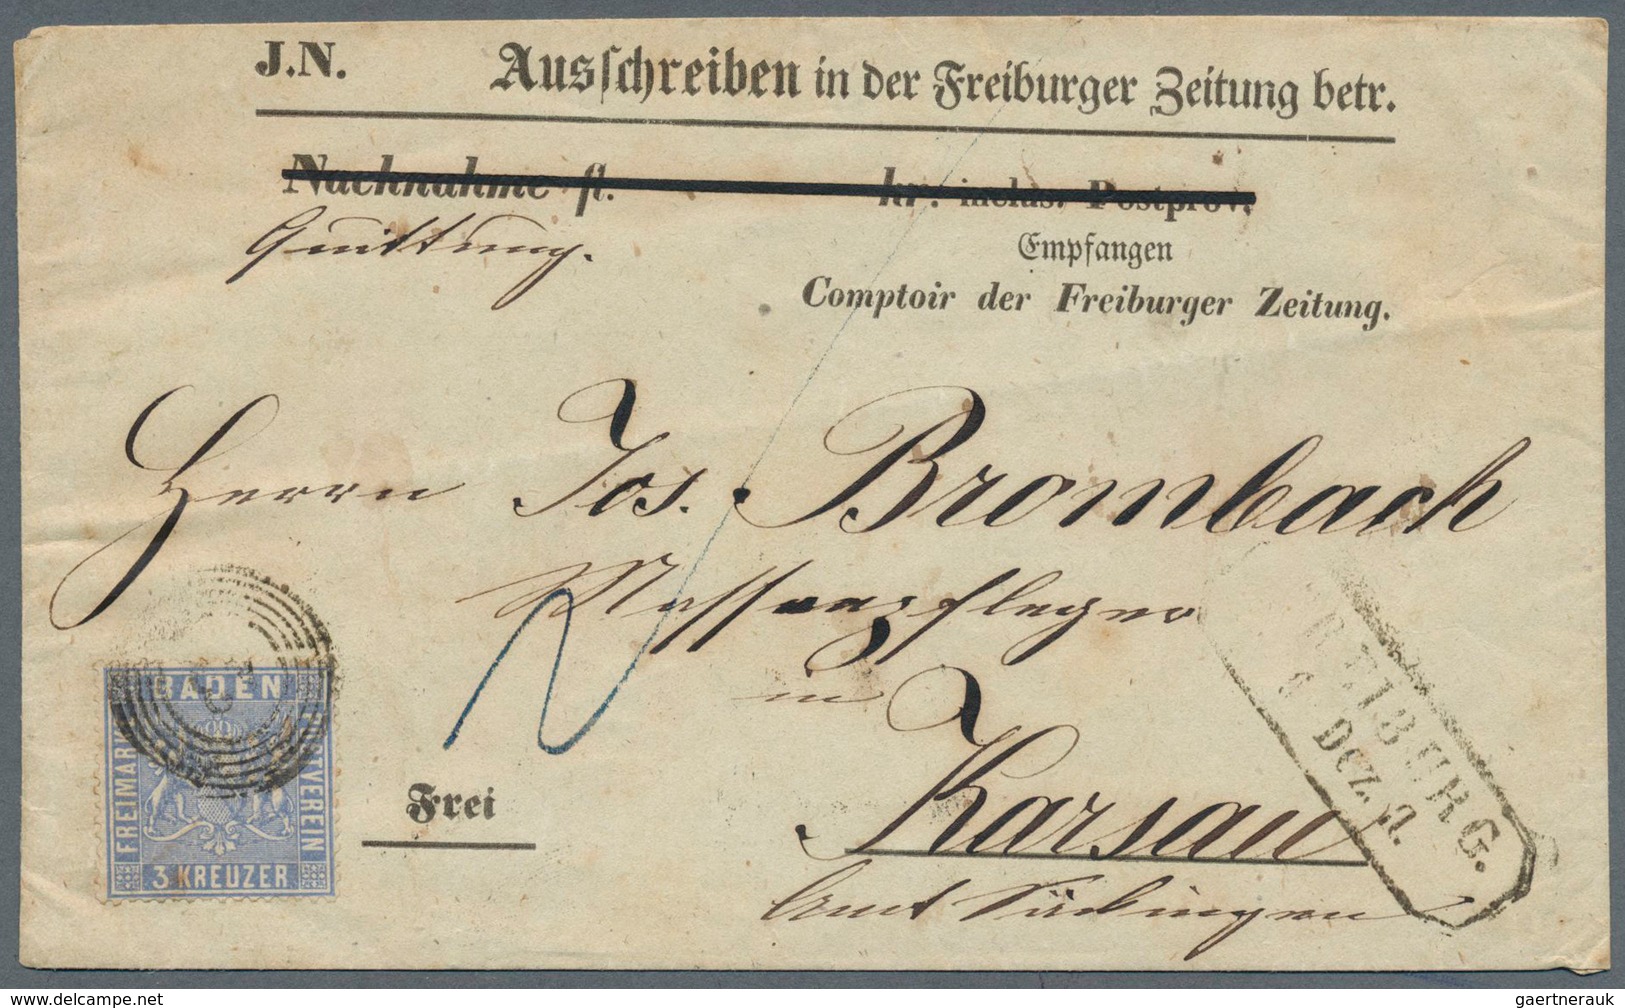 J.N. Ausschreiben in der Freiburger Zeitung betr.
Nachnahme fl. kr. inclus. Postprov.
Quittung.
Empfangen
Comptoir der Freiburger Zeitung.
Herrn Jos. Brombach
in
Karsau
Amt Säckingen
Frei
BADEN
FREIMARKE
POSTVEREIN
3 KREUZER
FREIBURG.
Dez.
delcampe.net
gaertnerauk